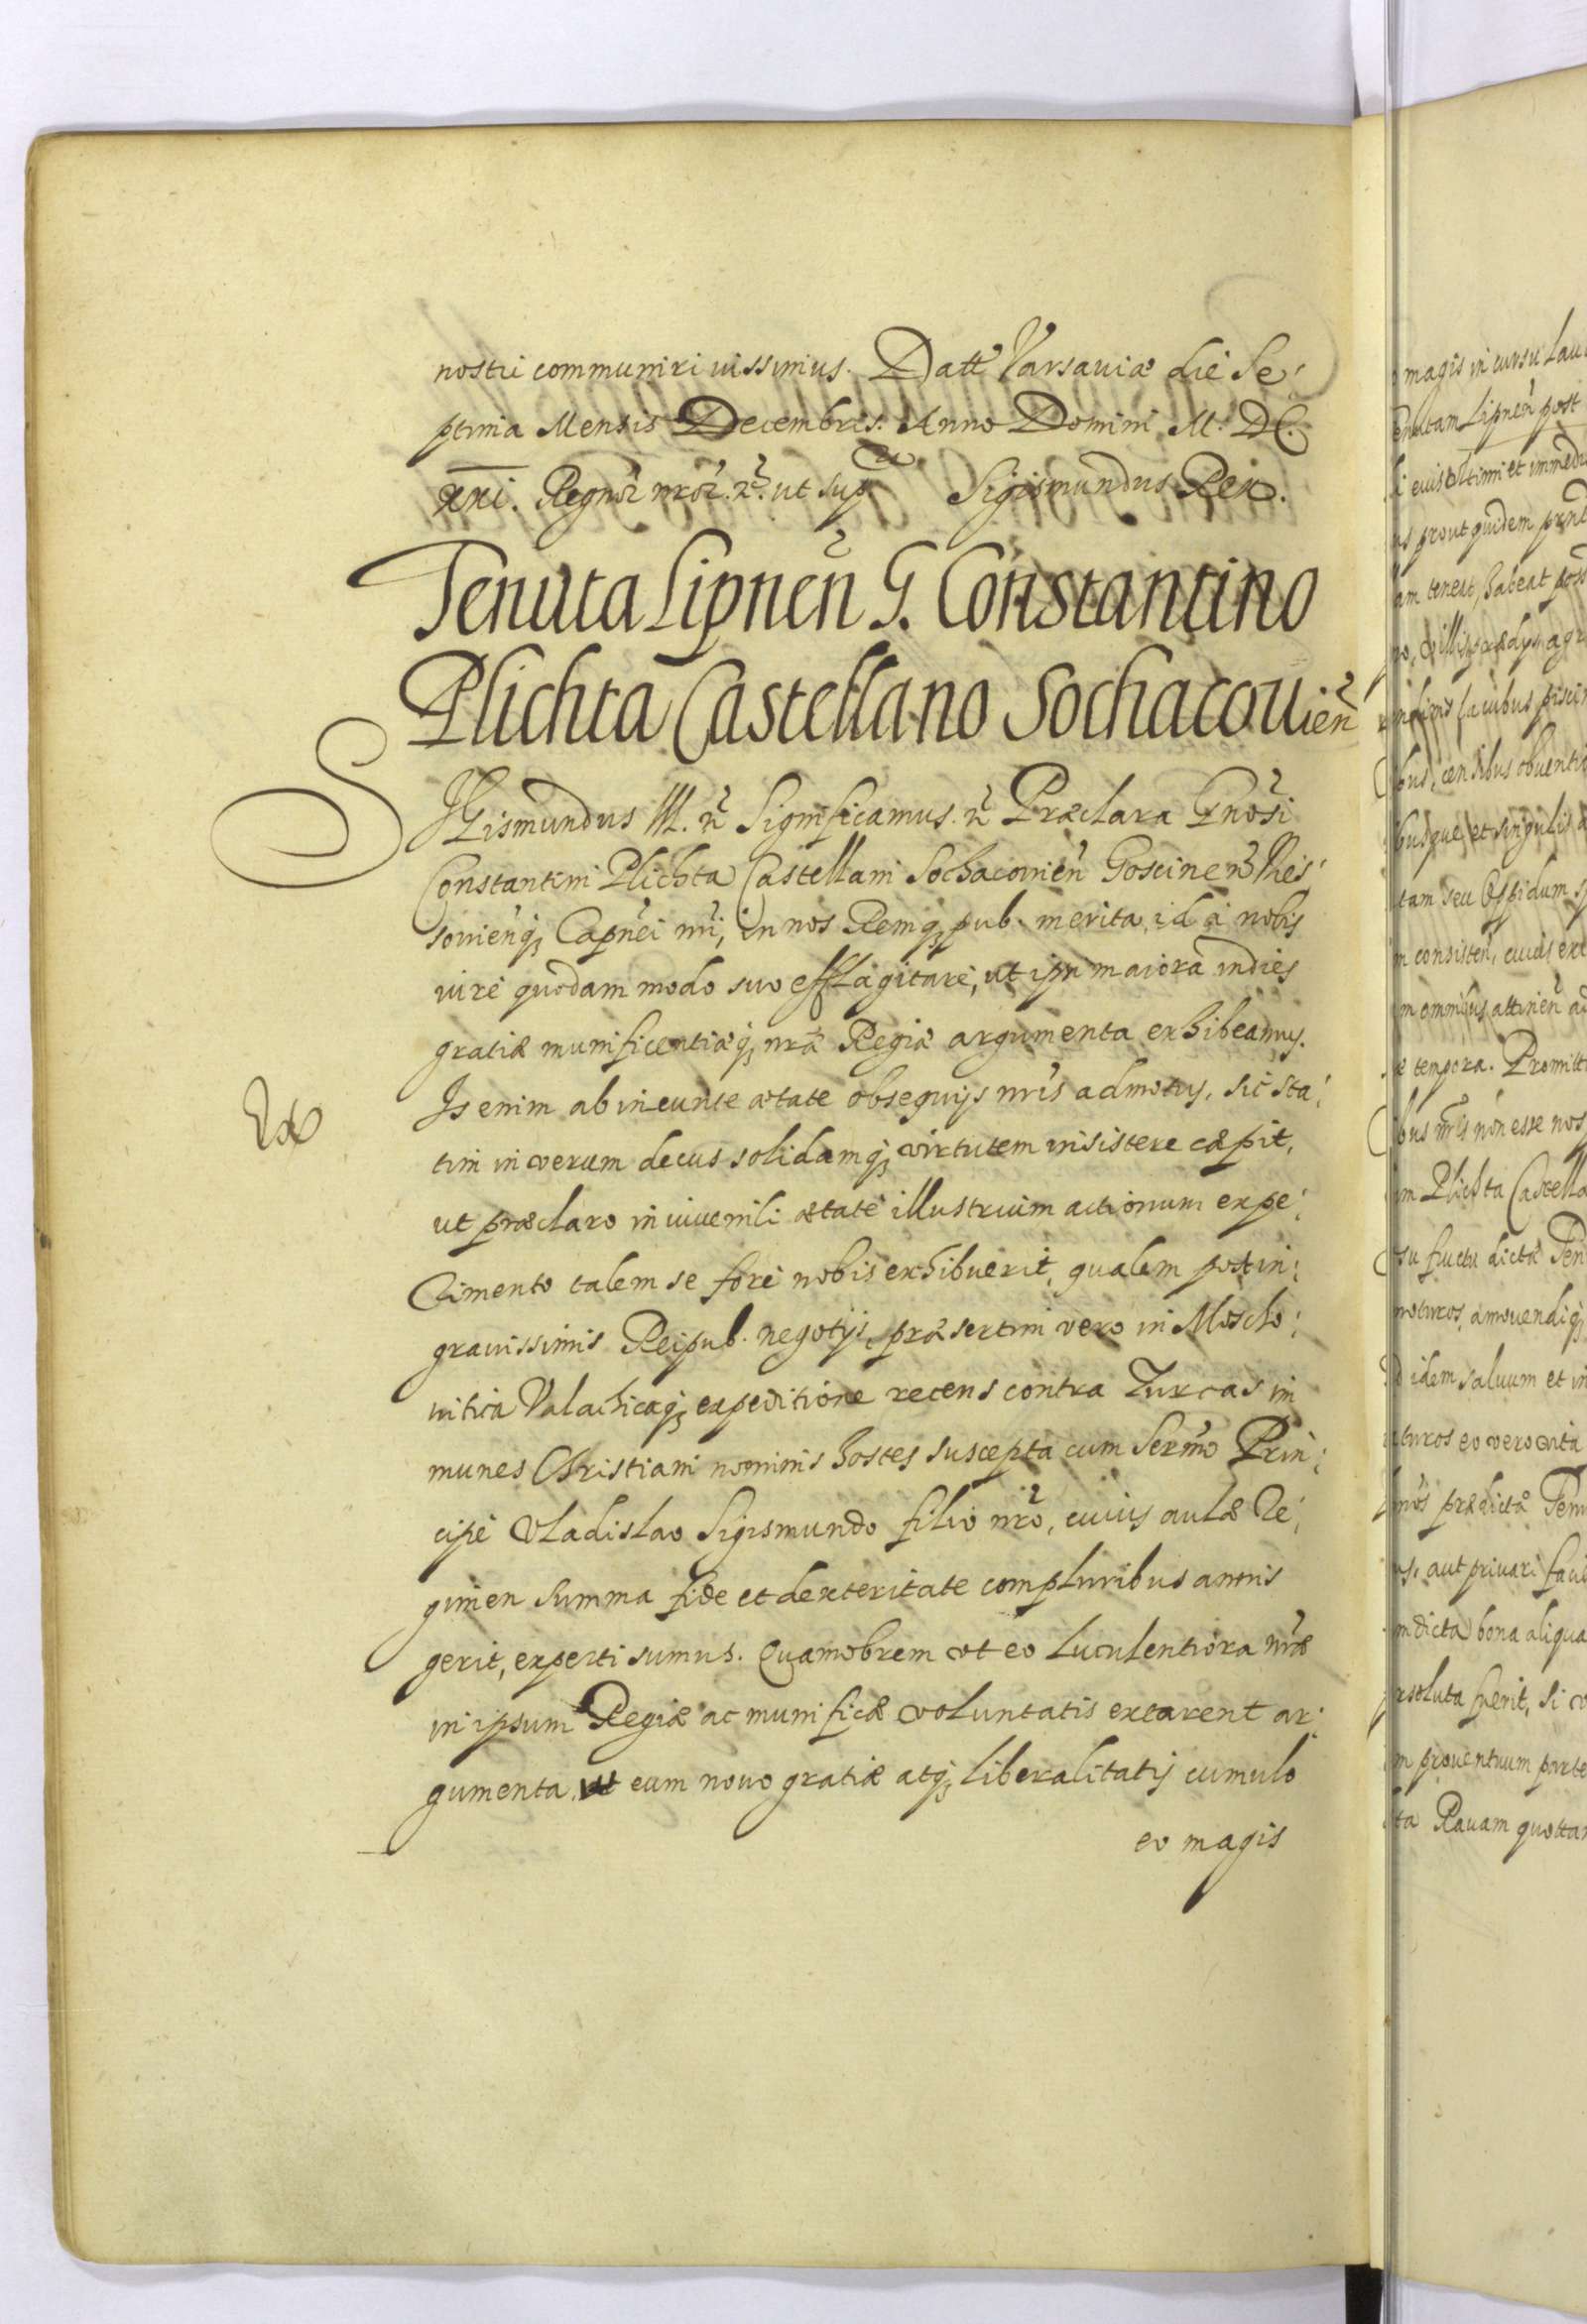 nostri communiri iussimus. Datt Varsauiæ die Se:
ptima Mensis Decembris. Anno Domini M. DC.
XXI. Regnor nror. rz. ut sup. Sigismundus Rex.
Tenuta Lipnen G. Constantino
Plichta Castellano Sochacouien
SIGismundus III. rz Significamus. rz Præclara Gnosi
Constantini Plichta Castellani Sochacouien Goscinen
souienq; Capnei nri, in nos Remq; pub. merita, id à nobis
iure quodam modo suo efflagitare, ut ipsi maiora indies
gratiæ munificentiæq; nræ Regiæ argumenta exhibeamus.
Is enim ab ineunte ætate obsequijs nris admotus, sic sta:
tim in verum decus solidamq; virtutem insistere cæpit,
ut præclaro in iuuenili ætate illustrium actionum expe:
rimento talem se fore nobis exhibuerit, qualem post in:
grauissimis Reipub. negotijs, præsertim vero in Moscho:
uitica Valachicaq; expeditione recens contra Turcas im
munes Christiani nominis hostes suscepta cum Sermo Prin:
cipe Vladislao Sigismundo filio nro, cuius aulæ Re:
gimen summa fide et dexteritate compluribus annis
gerit, experti sumus. Quamobrem vt eo luculentiora nræ
in ipsum Regiæ ac munificæ voluntatis extarent ar:
gumenta, ut eum nouo gratiæ atq; liberalitatis cumulo
eo magis
Ex
magis in cursu lau
Lipnen post
eius ultimi et immedi
prout quidem
teneat, habeat
piscin
censibus obuenti
et singulis
tam seu Oppidum
consisten, cuius
omnibus attinen
tempora. Promitt
nris non esse nos
Plichta Castella
fructu dictæ Ten
amouendiq;
idem saluum et in
eo vero vita
prædictæ Tenu
aut priuari
dicta bona aliqua
soluta fuerit, si
prouentuum parte
Rauam quotta